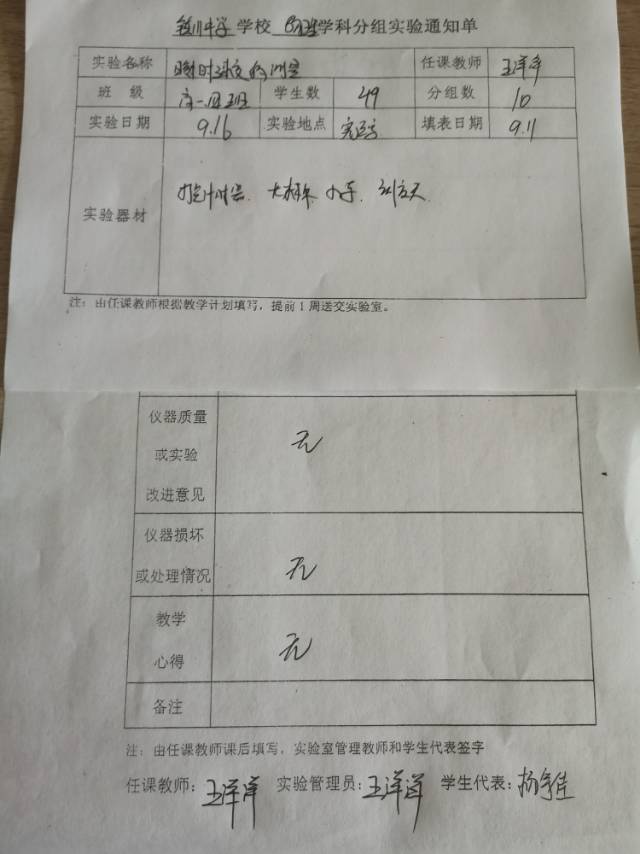 学校 物理学科分组实验通知单
实验名称 瞬时速度的测量 任课教师 王洋洋
班 级 高一四班 学生数 49 分组数 10
实验日期 9.16 实验地点 实验室 填表日期 9.11
实验器材
注：由任课教师根据教学计划填写，提前1周送交实验室。
仪器质量
或实验
改进意见
无
仪器损坏
或处理情况
无
教学
心得
无
备注
注：由任课教师课后填写，实验室管理教师和学生代表签字
任课教师：王洋洋 实验管理员：王洋洋 学生代表：